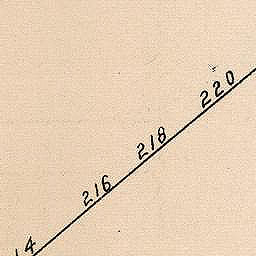 216
218
220